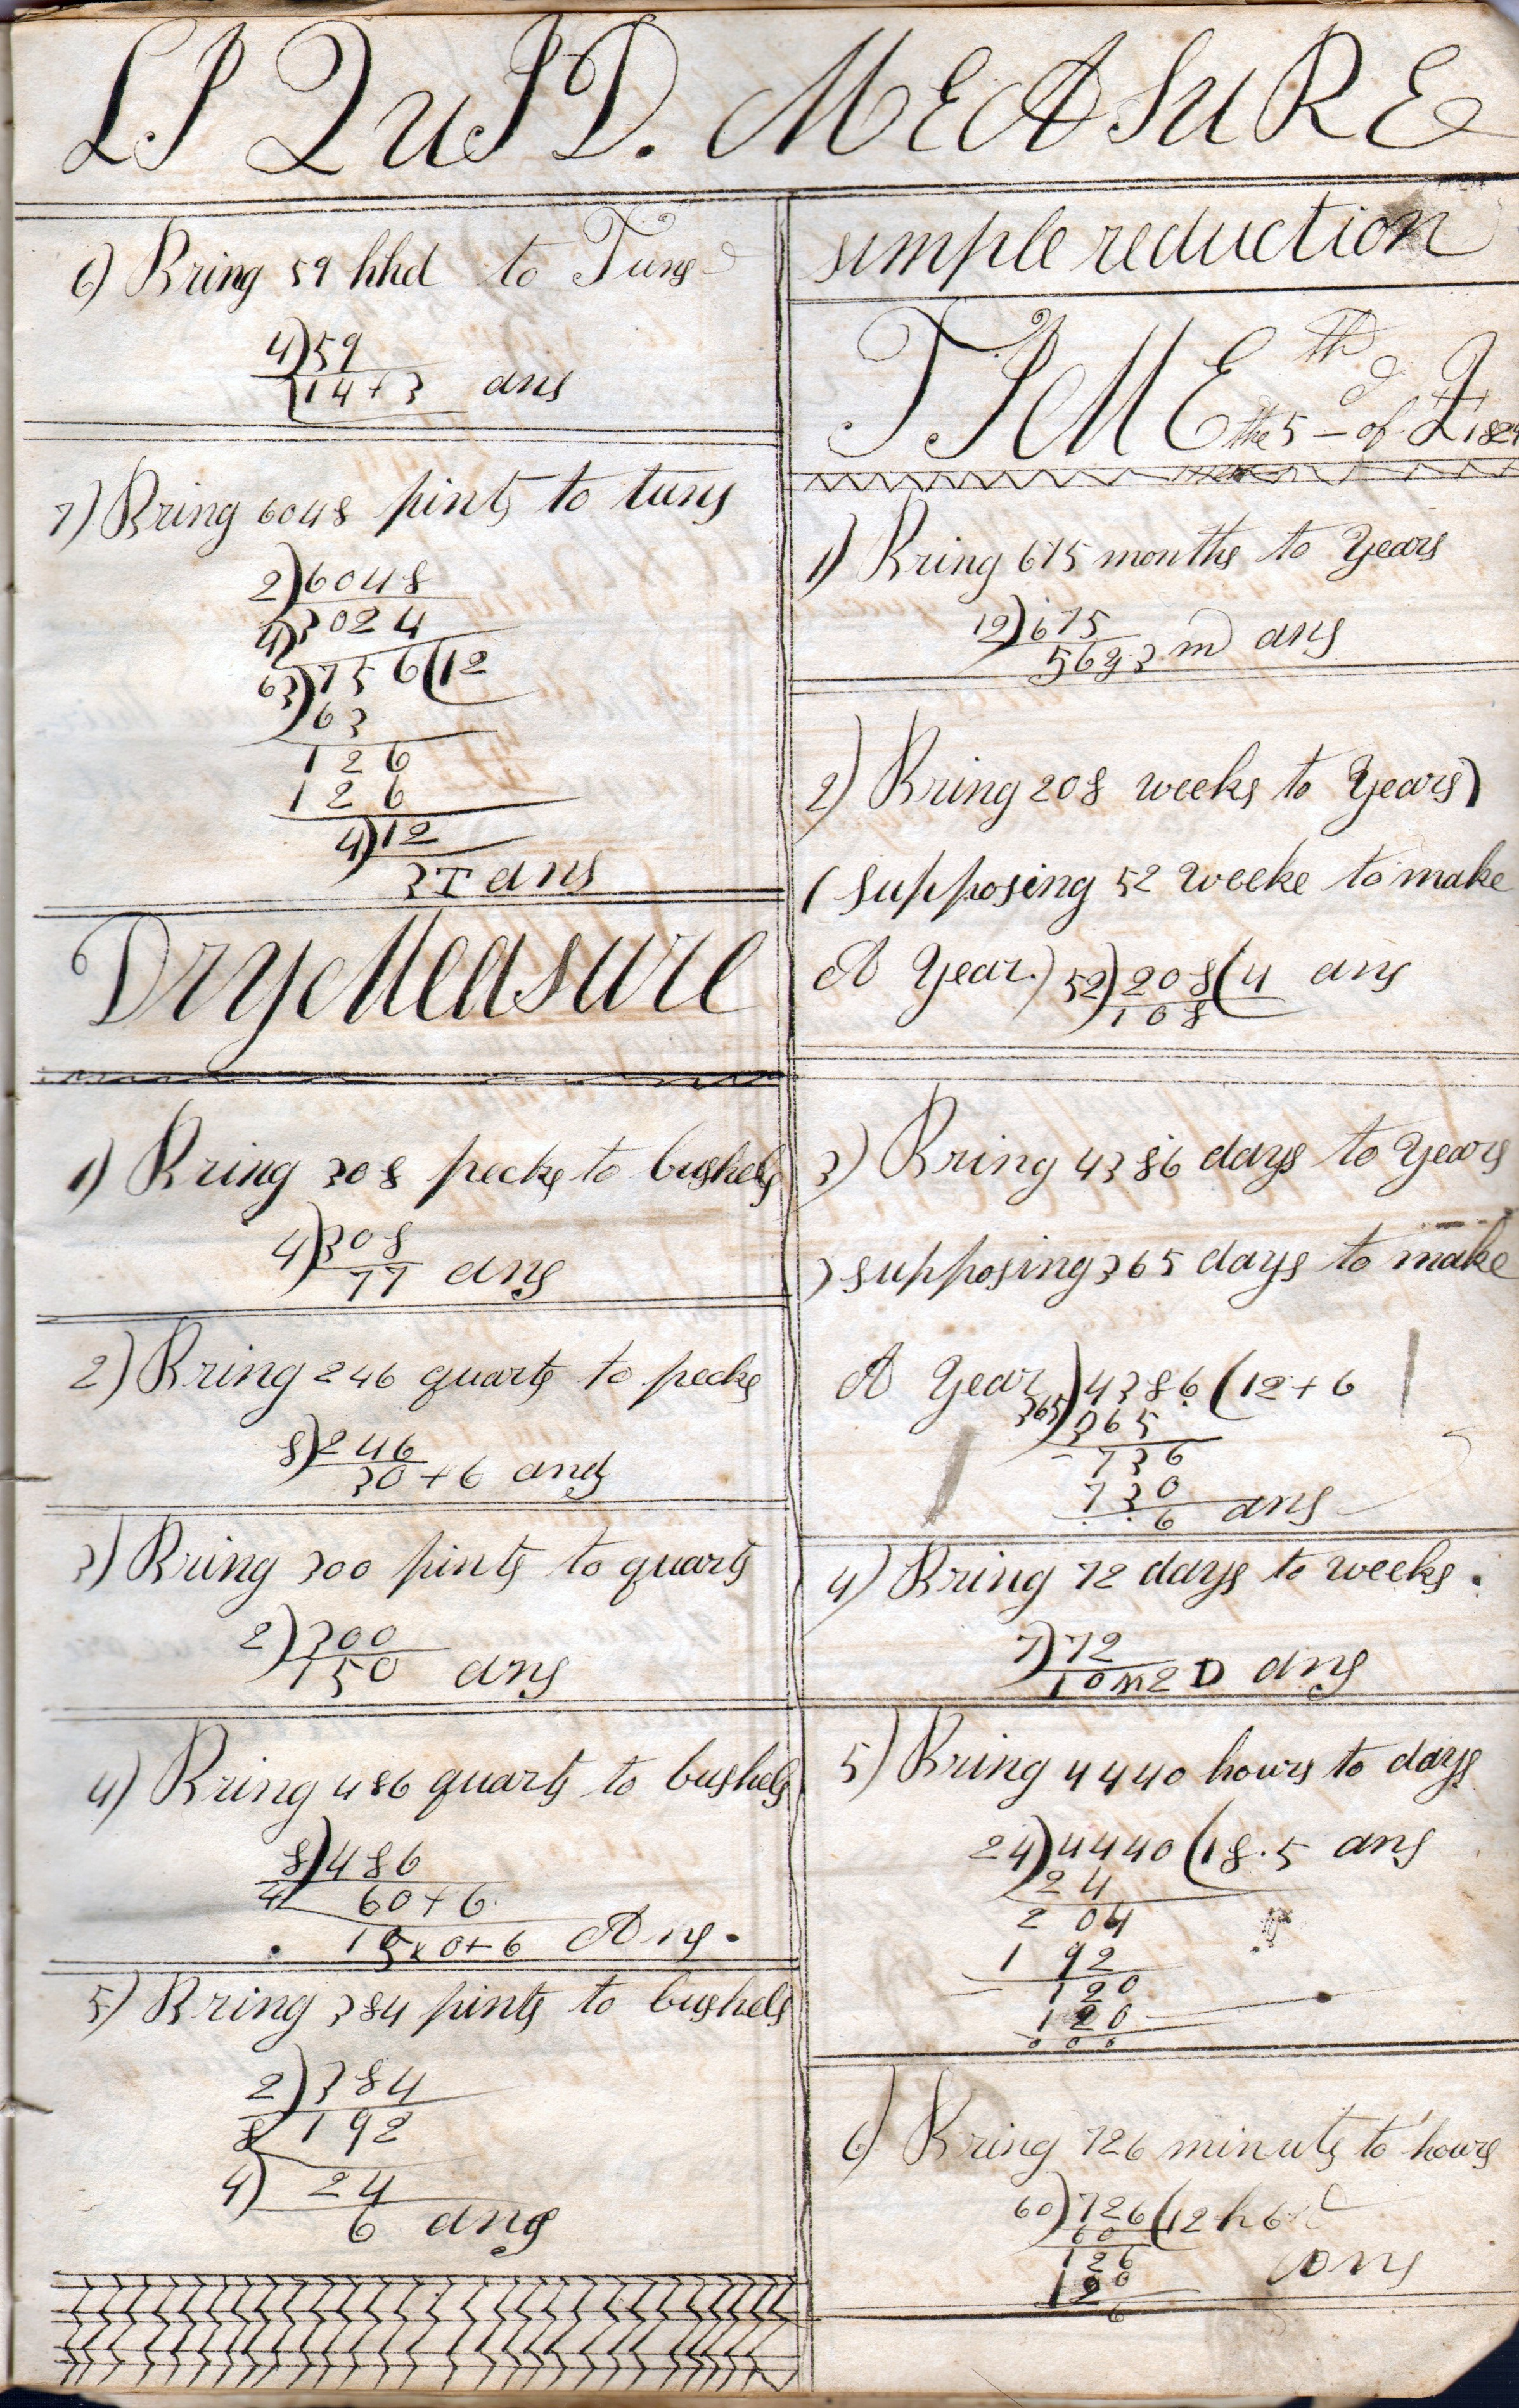 LIQuID. MEASuRE
6) Bring 59 hhd to Tuns
4)59
14+3 ans
7) Bring 6048 pints to tuns
2)6048
4)3024
63)756(12
63
126
126
4)12
3T ans
Dry Measure
1) Bring 308 pecks to bushels
4)308
77 ans
2) Bring 246 quarts to pecks
8)246
30+6 ans
3) Bring 300 pints to quarts
2)300
150 ans
4) Bring 486 quarts to bushels
8)486
4 60+6
15x0+6 Ans.
5) Bring 384 pints to bushels
2)384
8 192
4) 24
6 ans
simple reduction
TIME the 5th of 1824
1) Bring 675 months to Years
12)675
56 3 m ans
2) Bring 208 weeks to Years)
(supposing 52 weeke to make
A Year.) 52)208(4 ans
108
3) Bring 4386 days to Years
)supposing 365 days to make
A Year 365)4386(12+6
365
736
730
6 ans
4) Bring 72 days to weeks.
7)72
10 2 D ans
5) Bring 4440 hours to days
24)4440(18.5 ans
24
204
192
120
120
000
6) Bring 726 minuts to hours
60)726(12h6
60
126
120
6
ans